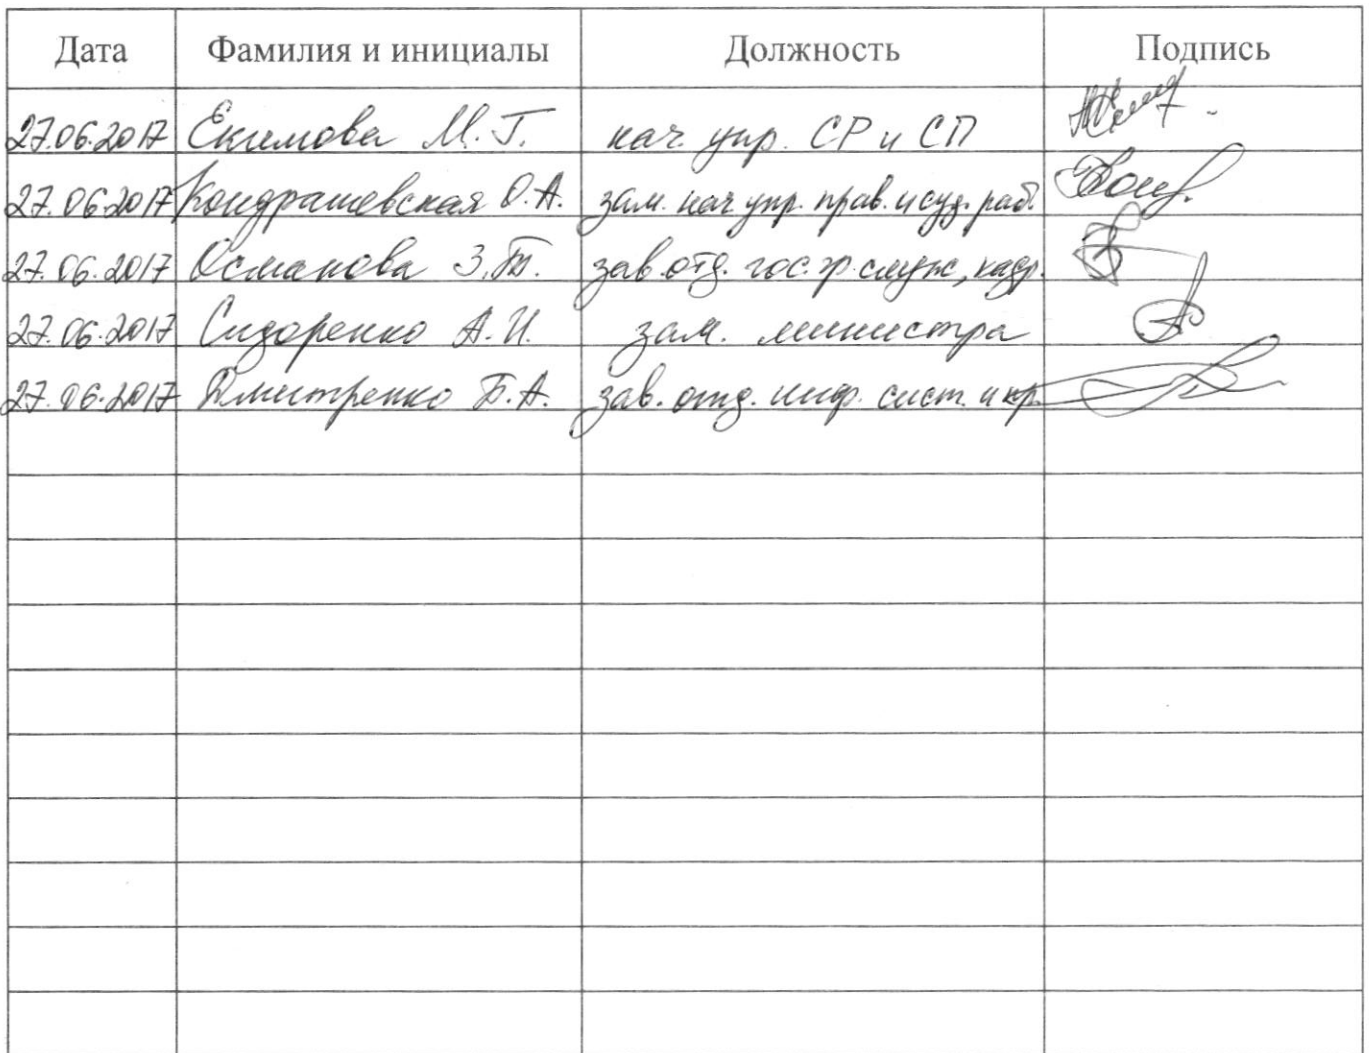 Дата Фамилия и инициалы Должность Подпись
27.06.2017 Екимова М.Г. нач. упр. СР и СП
27.06.2017 Кондрашевская О.А. зам. нач упр. прав. и суд. раб.
27.06.2017 Османова З.Т. зав. отд. гос. гр. служ, кадр.
27.06.2017 Сидоренко А.И. зам. министра
27.06.2017 Дмитренко Б.А. зав. отд. инф. сист. и кр.